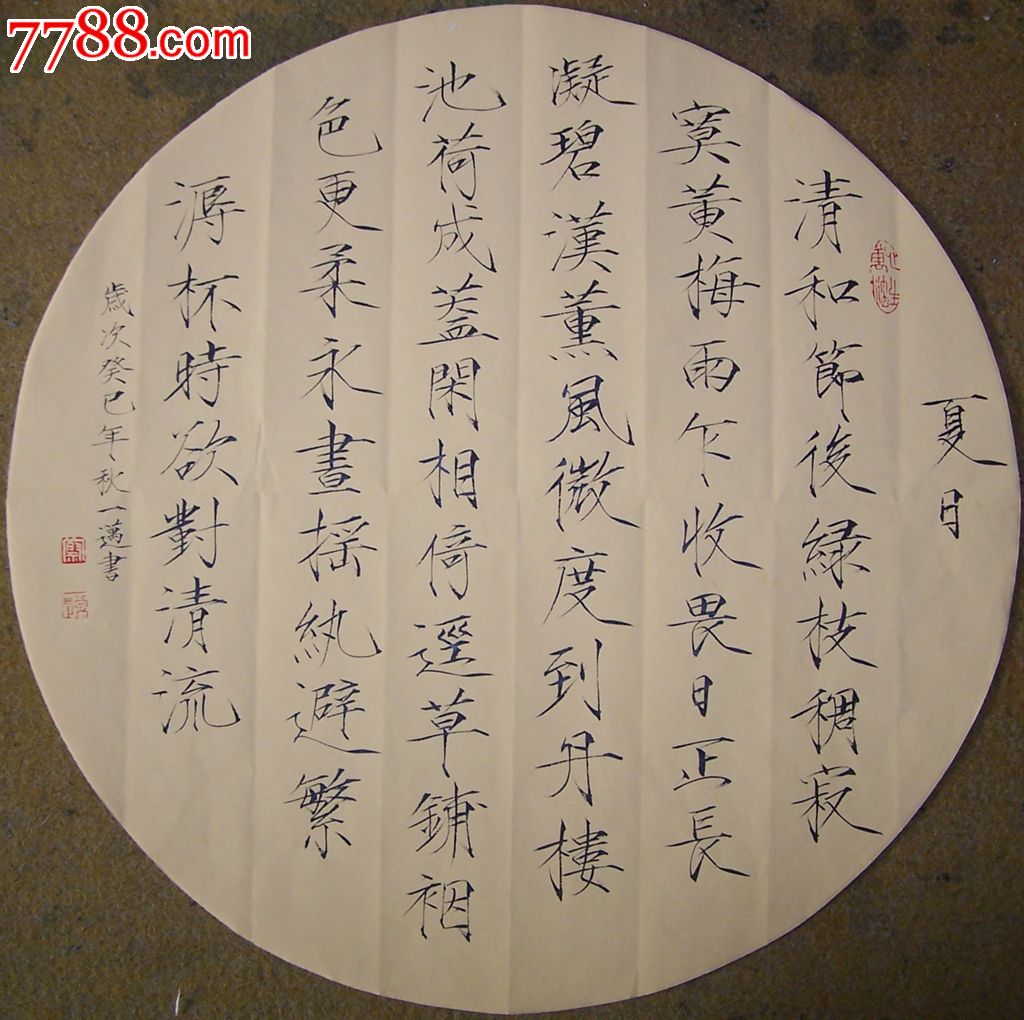 7788.com
夏日
清和節後緑枝稠寂
寞黄梅雨乍收畏日正長
凝碧漢薰風微度到丹樓
池荷成蓋閑相倚逕草鋪裀
色更柔永晝搖紈避繁
溽杯時欲對清流
歲次癸巳年秋一邁書